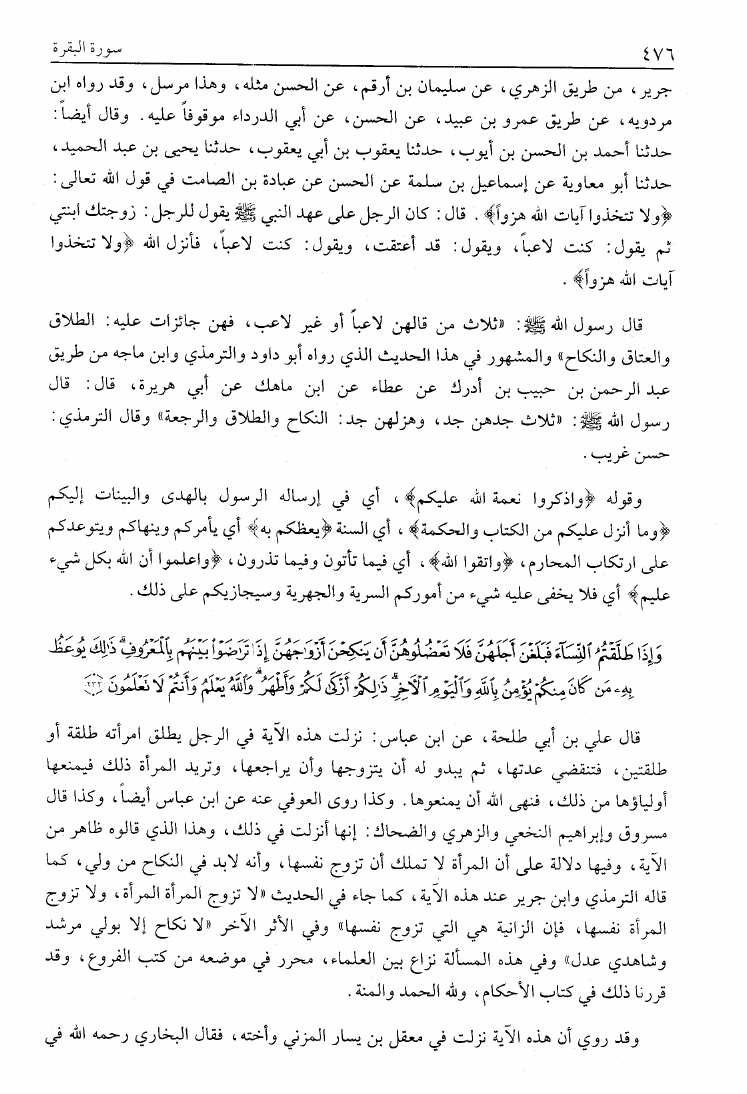 ٤٧٦ سورة البقرة
جرير، من طريق الزهري، عن سليمان بن أرقم، عن الحسن مثله، وهذا مرسل، وقد رواه ابن
مردويه، عن طريق عمرو بن عبيد، عن الحسن، عن أبي الدرداء موقوفاً عليه. وقال أيضاً:
حدثنا أحمد بن الحسن بن أيوب، حدثنا يعقوب بن أبي يعقوب، حدثنا يحيى بن عبد الحميد،
حدثنا أبو معاوية عن إسماعيل بن سلمة عن الحسن عن عبادة بن الصامت في قول الله تعالى:
﴿ولا تتخذوا آيات الله هزواً﴾. قال: كان الرجل على عهد النبي ﷺ يقول للرجل: زوجتك ابنتي
ثم يقول: كنت لاعباً، ويقول: قد أعتقت، ويقول: كنت لاعباً، فأنزل الله ﴿ولا تتخذوا
آيات الله هزواً﴾.
قال رسول الله ﷺ: «ثلاث من قالهن لاعباً أو غير لاعب، فهن جائزات عليه: الطلاق
والعتاق والنكاح» والمشهور في هذا الحديث الذي رواه أبو داود والترمذي وابن ماجه من طريق
عبد الرحمن بن حبيب بن أدرك عن عطاء عن ابن ماهك عن أبي هريرة، قال: قال
رسول الله ﷺ: «ثلاث جدهن جد، وهزلهن جد: النكاح والطلاق والرجعة» وقال الترمذي:
حسن غريب.
وقوله ﴿واذكروا نعمة الله عليكم﴾، أي في إرساله الرسول بالهدى والبينات إليكم
﴿وما أنزل عليكم من الكتاب والحكمة﴾، أي السنة ﴿يعظكم به﴾ أي يأمركم وينهاكم ويتوعدكم
على ارتكاب المحارم، ﴿واتقوا الله﴾، أي فيما تأتون وفيما تذرون، ﴿واعلموا أن الله بكل شيء
عليم﴾ أي فلا يخفى عليه شيء من أموركم السرية والجهرية وسيجازيكم على ذلك.
وَإِذَا طَلَّقْتُمُ ٱلنِّسَآءَ فَبَلَغْنَ أَجَلَهُنَّ فَلَا تَعْضُلُوهُنَّ أَن يَنكِحْنَ أَزْوَٰجَهُنَّ إِذَا تَرَٰضَوْا۟ بَيْنَهُم بِٱلْمَعْرُوفِ ۗ ذَٰلِكَ يُوعَظُ
بِهِۦ مَن كَانَ مِنكُمْ يُؤْمِنُ بِٱللَّهِ وَٱلْيَوْمِ ٱلْـَٔاخِرِ ۗ ذَٰلِكُمْ أَزْكَىٰ لَكُمْ وَأَطْهَرُ ۗ وَٱللَّهُ يَعْلَمُ وَأَنتُمْ لَا تَعْلَمُونَ ﴿٢٣٢﴾
قال علي بن أبي طلحة، عن ابن عباس: نزلت هذه الآية في الرجل يطلق امرأته طلقة أو
طلقتين، فتنقضي عدتها، ثم يبدو له أن يتزوجها وأن يراجعها، وتريد المرأة ذلك فيمنعها
أولياؤها من ذلك، فنهى الله أن يمنعوها. وكذا روى العوفي عنه عن ابن عباس أيضاً، وكذا قال
مسروق وإبراهيم النخعي والزهري والضحاك: إنها أنزلت في ذلك، وهذا الذي قالوه ظاهر من
الآية، وفيها دلالة على أن المرأة لا تملك أن تزوج نفسها، وأنه لابد في النكاح من ولي، كما
قاله الترمذي وابن جرير عند هذه الآية، كما جاء في الحديث «لا تزوج المرأة المرأة، ولا تزوج
المرأة نفسها، فإن الزانية هي التي تزوج نفسها» وفي الأثر الآخر «لا نكاح إلا بولي مرشد
وشاهدي عدل» وفي هذه المسألة نزاع بين العلماء، محرر في موضعه من كتب الفروع، وقد
قررنا ذلك في كتاب الأحكام، ولله الحمد والمنة.
وقد روي أن هذه الآية نزلت في معقل بن يسار المزني وأخته، فقال البخاري رحمه الله في